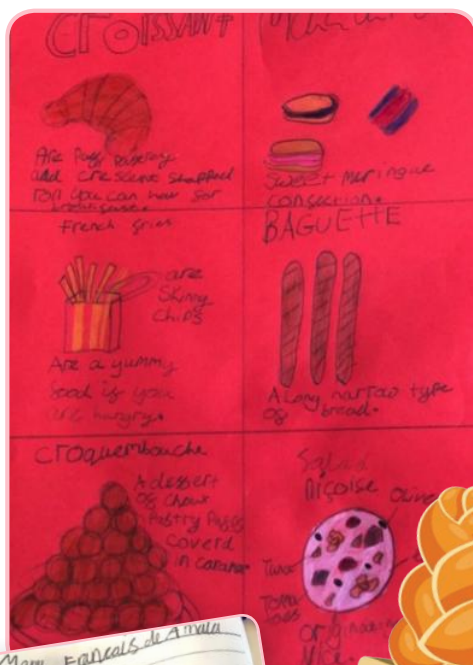 CROISSANT
Are Puff pastery
and crescent shapped
roll you can have for
Sweet Meringue
consection.
French fries
are
Skinny
Chips
Are a yummy
food if you
are hungry.
BAGUETTE
A Long narrow type
of bread.
Croquembouche
A dessert
of choux
Pastry Puffs
Coverd
in caramel
Salad
niçoise
Olive
Tuna
Toma
toes
originating
Nice.
Menu Français de Amara